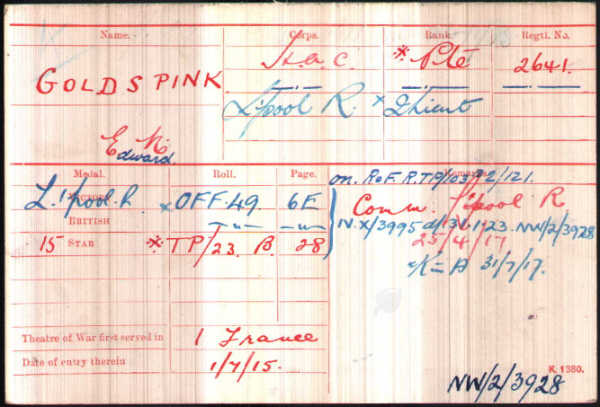 Name. Corps. Rank. Regtl. No.
GOLDSPINK H.A.C. * Pte 2641.
L'pool R. x 2/Lieut
E
Edward
Medal. Roll. Page. Remarks.
on. R of F. R. TP/103 /2/121.
L'pool R VICTORY x OFF.49. 6E
BRITISH - " - - " -
15 STAR * TP/23. B. 28
Comm. L'pool R
N.X/3995 d/31.1.23. NW/2/3928
25/4/17
"K=A 31/7/17.
Theatre of War first served in 1 France
Date of entry therein 1/7/15.
K. 1380.
NW/2/3928